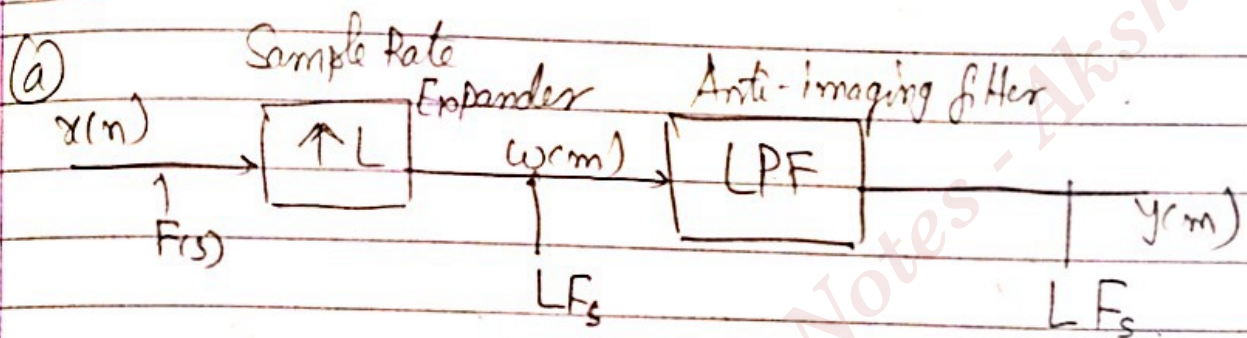 (a)
Sample Rate
Expander
Anti-imaging filter
x(n)
↑L
w(m)
LPF
y(m)
F(s)
LFs
L Fs
Notes - Aksh